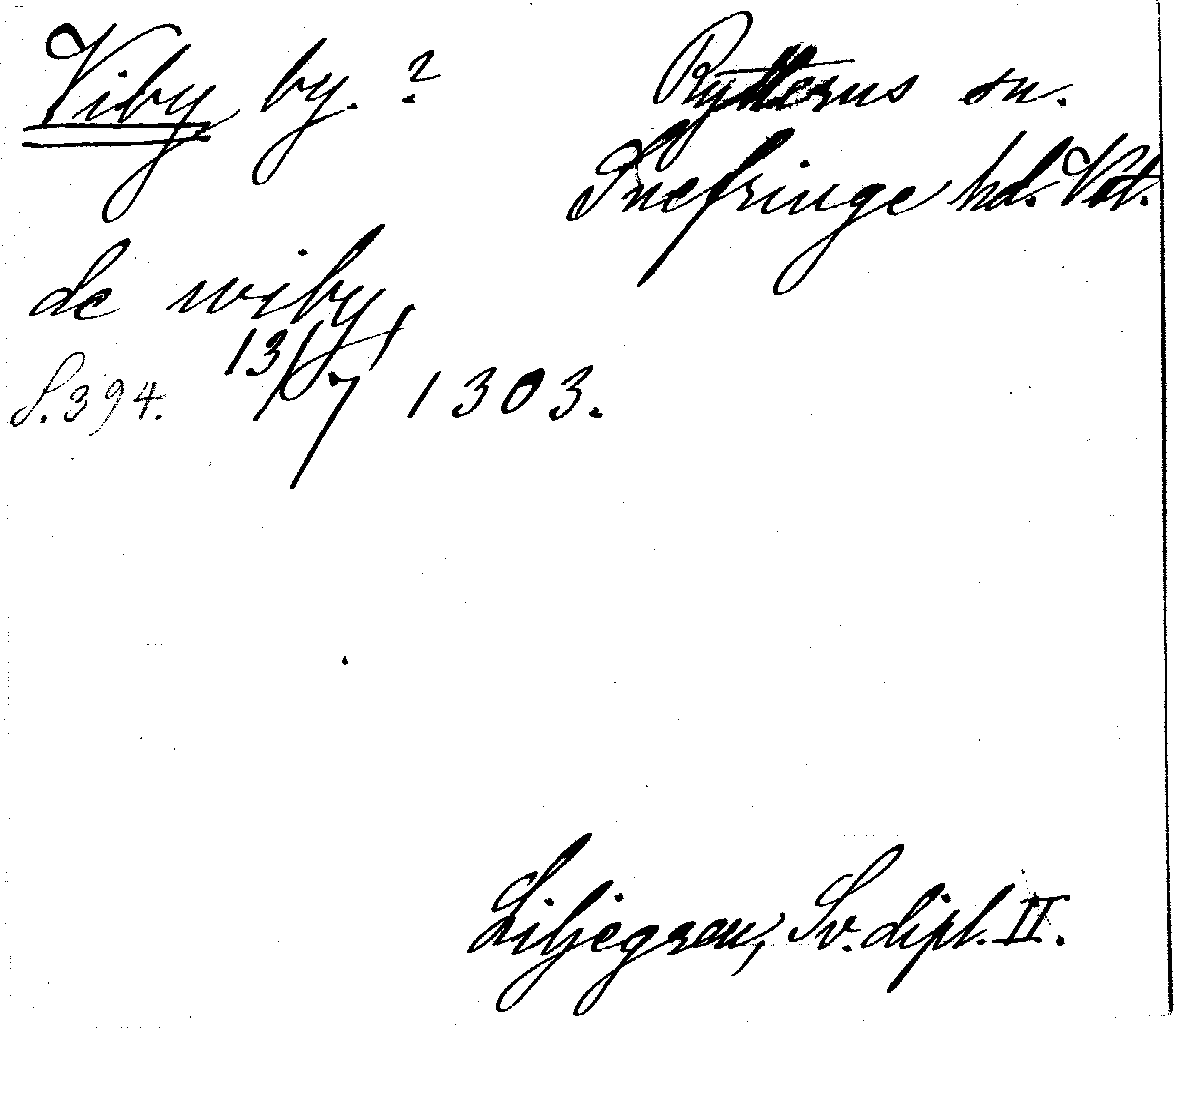 Viby by. ?
Rytterus sn.
Snefringe hd. Vst.
de wiby
S. 394. 13/7 1303.
Liljegren, Sv. dipl. II.